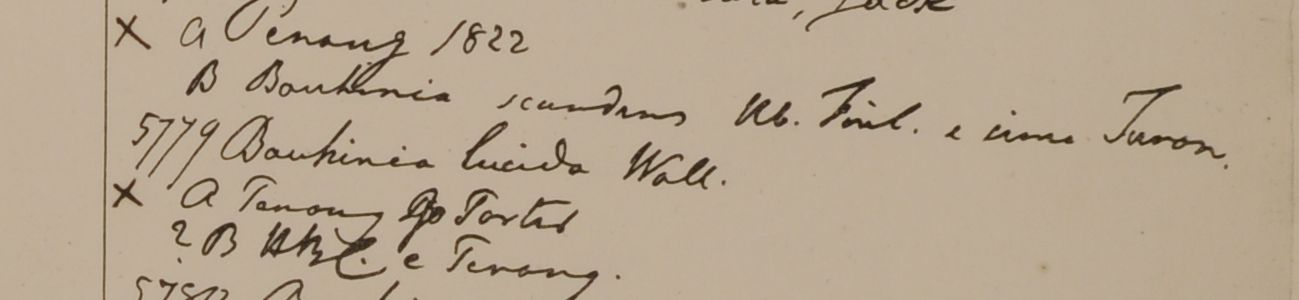 Jack
× a Penang 1822
B Bauhinia scandens Hb. Finl. e sinu Turon.
5779 Bauhinia lucida Wall.
× a Penang Porter
? B HBC. e Penang.